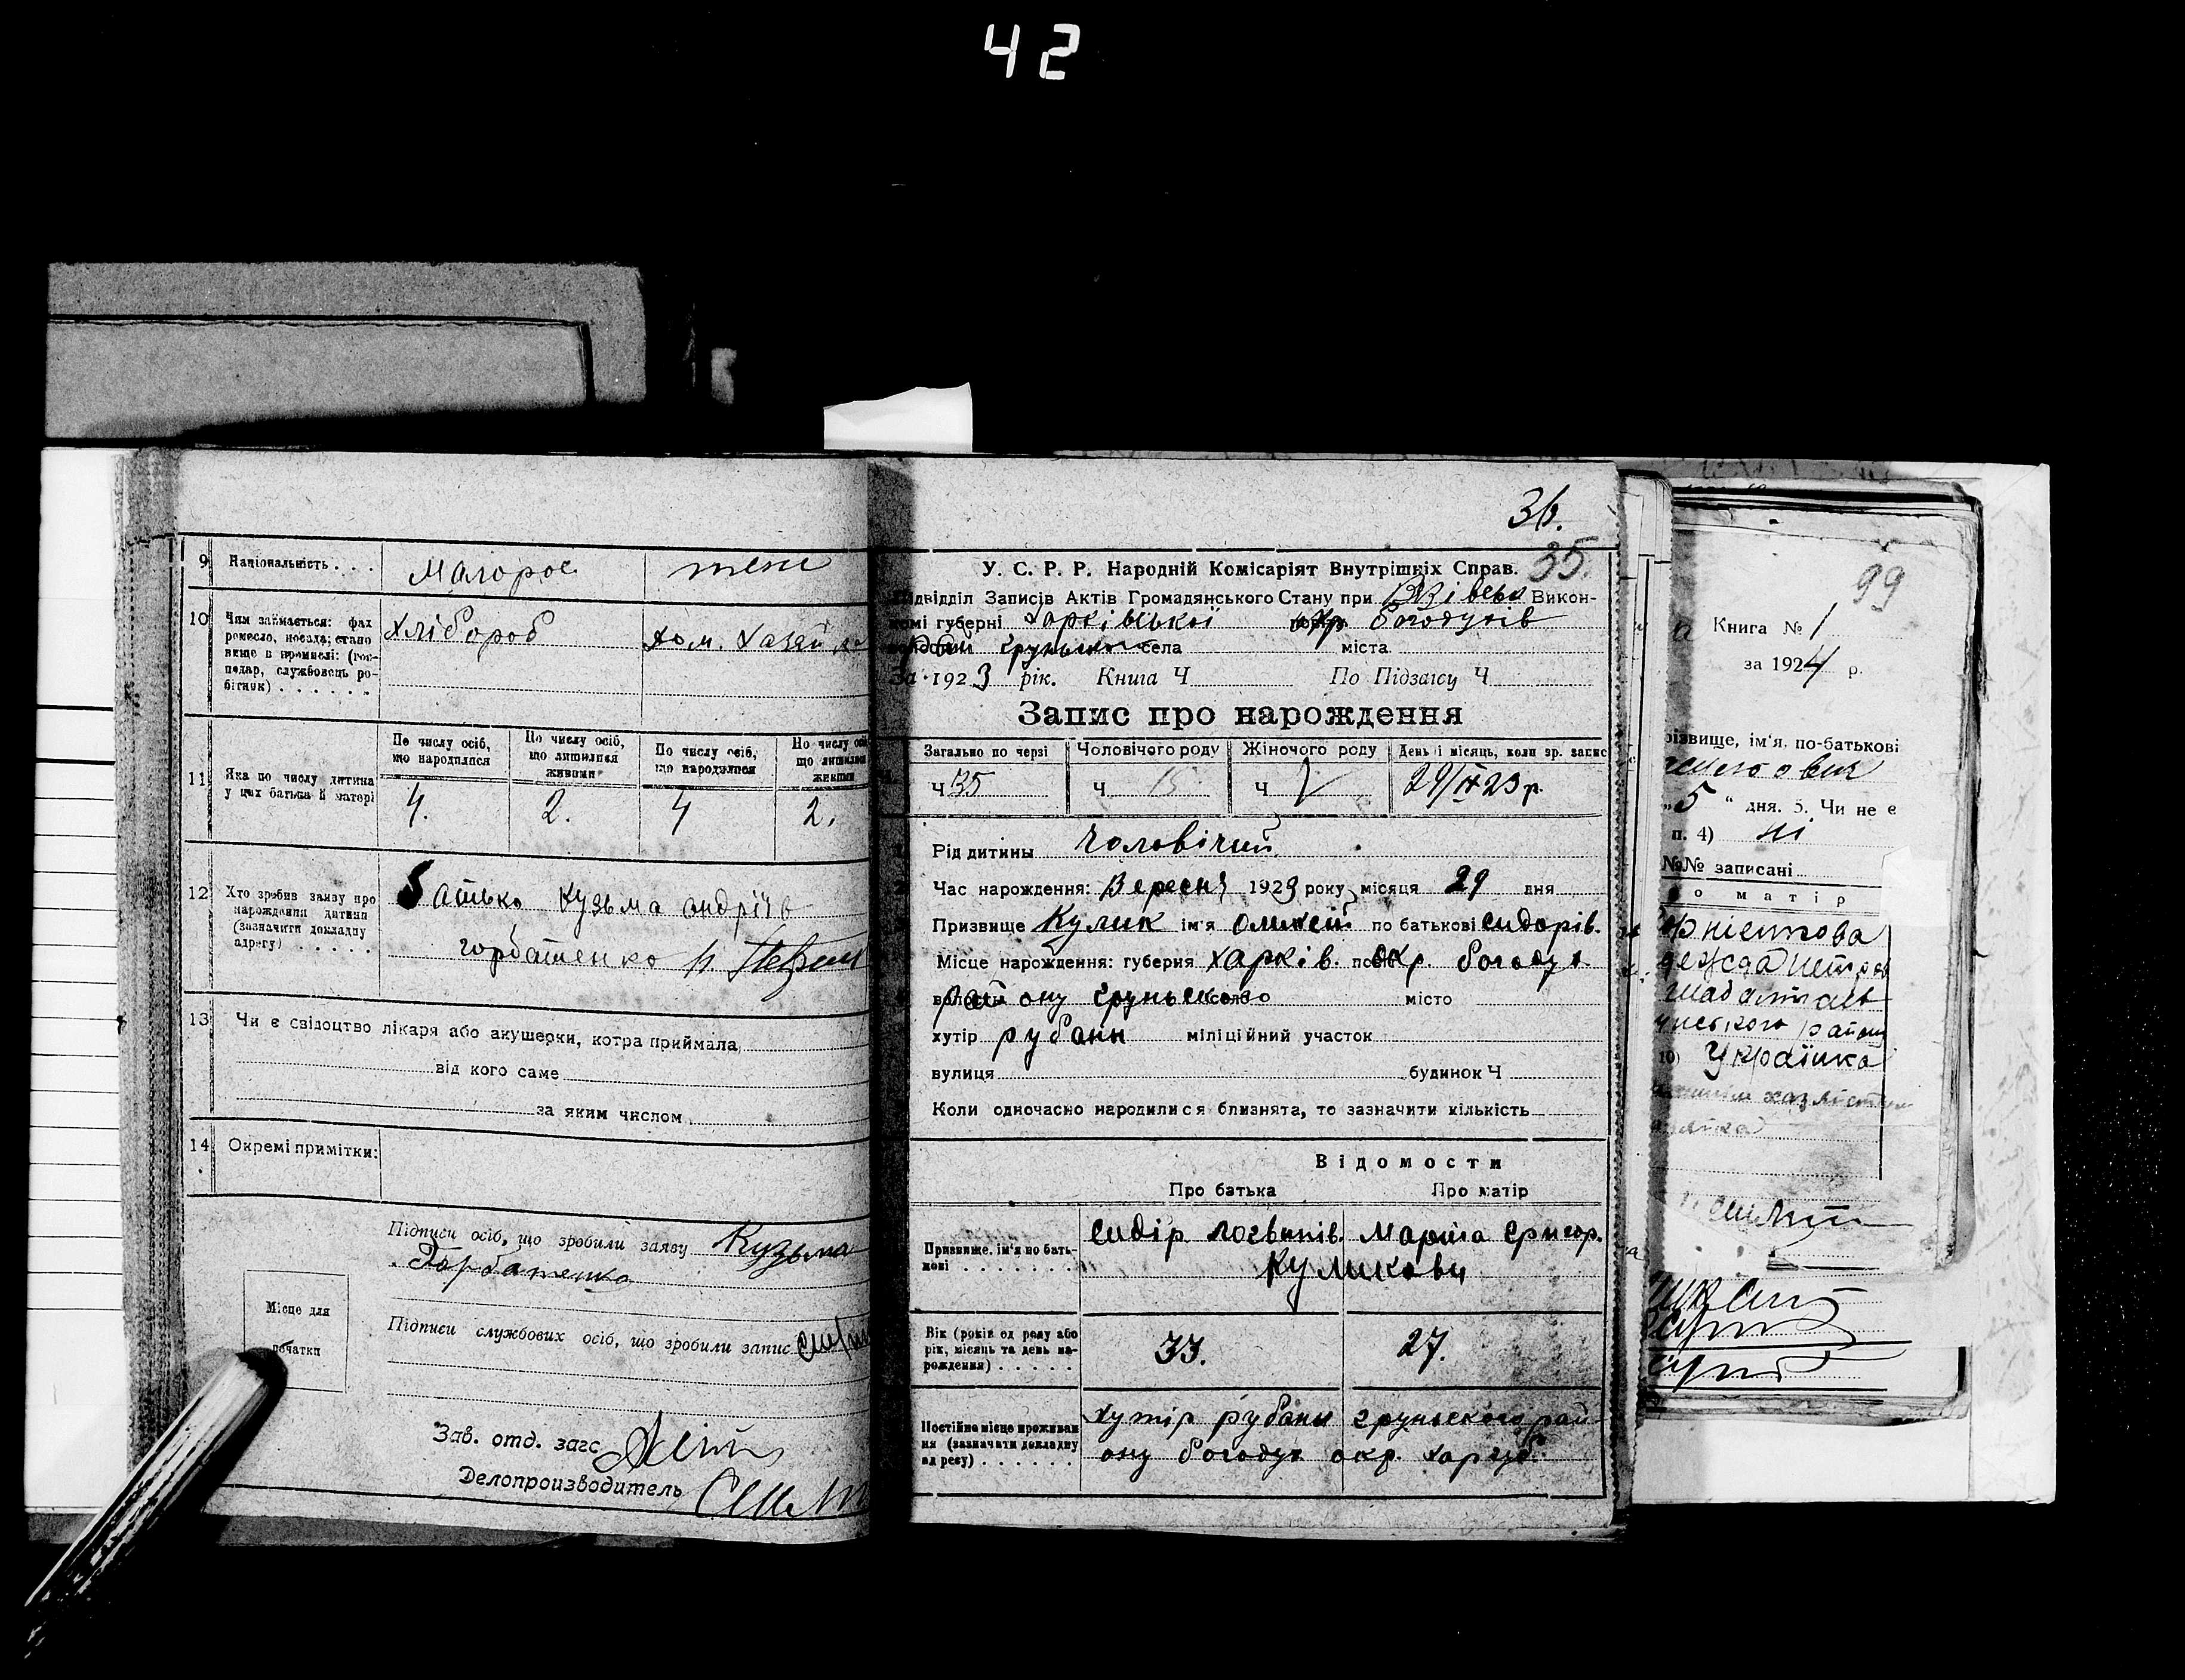 42
9 Національність . . . Малорос
10 Чим займається: фах
ремесло, посада; стано
вище в промислі: (гос-
подар, службовець ро-
бітник) . . . . . .
Хлібороб
дом. Хазяйка
11 Яка по числу дитина
у цих батька й матері
По числу осіб,
що народилися
По числу осіб,
що лишилися
живими
По числу осіб,
що народилися
По числу осіб
що лишилися
живими
4. 2. 4 2.
12 Хто зробив заяву про
нарождення дитини
(зазначити докладну
адресу) . . . . .
Батько Кузьма андріїв
горбатенко
13 Чи є свідоцтво лікаря або акушерки, котра приймала
від кого саме
за яким числом
14 Окремі примітки:
Підписи осіб, що зробили заяву Кузьма
Горбатенко
Місце для
початки
Підписи службових осіб, що зробили запис
Зав. отд. загс
Делопроизводитель
36.
35.
У. С. Р. Р. Народній Комісаріят Внутрішніх Справ.
Підвідділ Записів Актів Громадянського Стану при Викон-
комі губерні Харківської окр. богодухів
села міста
За 1923 рік. Книга Ч По Підзагсу Ч
Запис про народження
Загально по черзі Чоловічого роду Жіночого роду День і місяць, коли зр. запис
Ч 135 Ч 15 Ч 29/IX 23 р.
Рід дитини Чоловічий.
Час нарождення: Вересня 1923 року місяця 29 дня
Призвище Кулик ім'я олексій по батькові сидорів.
Місце нарождення: губерня Харків. окр. богодух
району груньского місто
хутір рубани міліційний участок
вулиця будинок Ч
Коли одночасно народилися близнята, то зазначити кількість
Відомости
Про батька Про матір
Призвище, ім'я по бать-
кові . . . . . . .
сидір логвинів. Марія григор.
Куликови
Вік (років од роду або
рік, місяць та день на-
рождення) . . . . .
33. 27.
Постійне місце проживан
ня (зазначати докладну
адресу) . . . . . .
хутір рубани груньского рай-
ону богодух окр. харгуб.
99
Книга № 1
за 1924 р.
різвище, ім'я, по-батькові
„5“ дня. 5. Чи не є
п. 4) ні
№№ записані
о матір
10) Українка